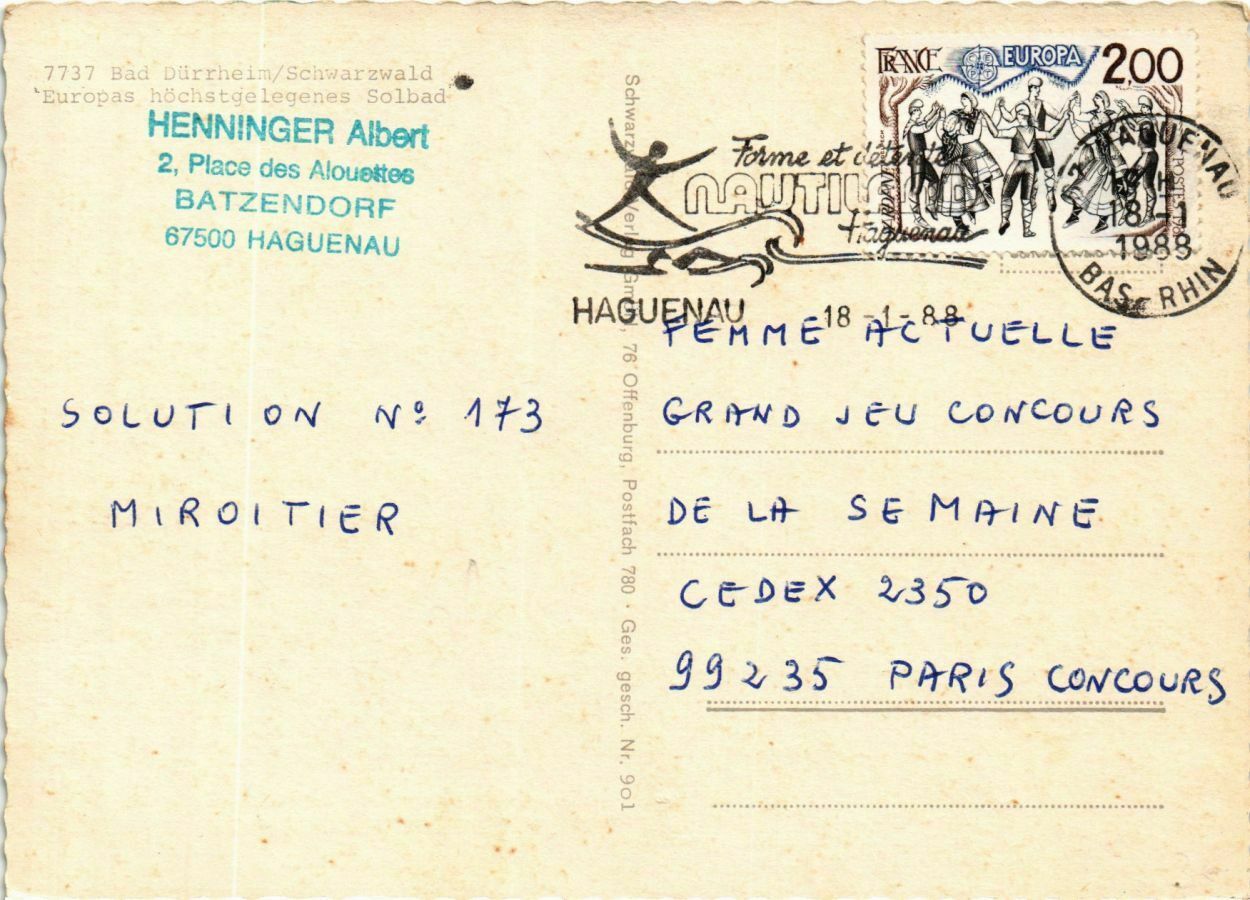 7737 Bad Dürrheim/Schwarzwald
Europas höchstgelegenes Solbad
HENNINGER Albert
2, Place des Alouettes
BATZENDORF
67500 HAGUENAU
SOLUTION Nº 173
MIROITIER
Ges. gesch. Nr. 901
76 Offenburg, Postfach 780 ·
FRANCE EUROPA 2,00
Forme et détente
Haguenau
HAGUENAU 18-1-88
HAGUENAU
18-1
1988
BAS-RHIN
FEMME ACTUELLE
GRAND JEU CONCOURS
DE LA SEMAINE
CEDEX 2350
99235 PARIS CONCOURS